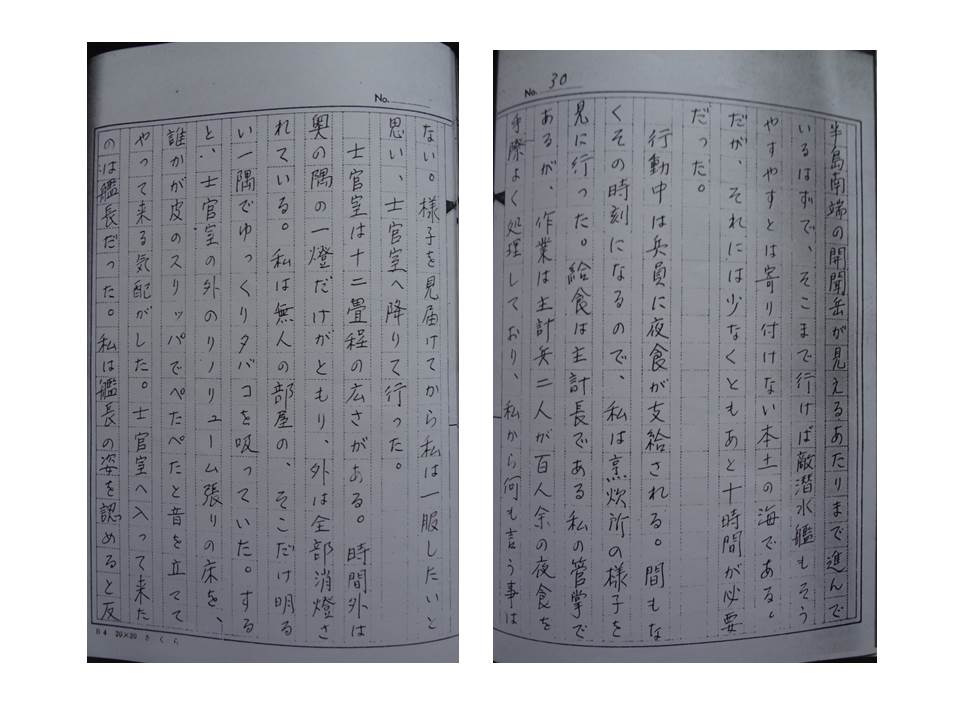 No. 30
半島南端の開聞岳が見えるあたりまで進んで
いるはずで、そこまで行けば敵潜水艦もそう
やすやすとは寄り付けない本土の海である。
だが、それには少なくともあと十時間が必要
だった。
行動中は兵員に夜食が支給される。間もな
くその時刻になるので、私は烹炊所の様子を
見に行った。給食は主計長である私の管掌で
あるが、作業は主計兵二人が百人余の夜食を
手際よく処理しており、私から何も言う事は
No.
ない。様子を見届けてから私は一服したいと
思い、士官室へ降りて行った。
士官室は十二畳程の広さがある。時間外は
奥の隅の一燈だけがともり、外は全部消燈さ
れている。私は無人の部屋の、そこだけ明る
い一隅でゆっくりタバコを吸っていた。する
と、士官室の外のリノリューム張りの床を、
誰かが皮のスリッパでぺたぺたと音を立てて
やって来る気配がした。士官室へ入って来た
のは艦長だった。私は艦長の姿を認めると反
B4 20×20 さくら